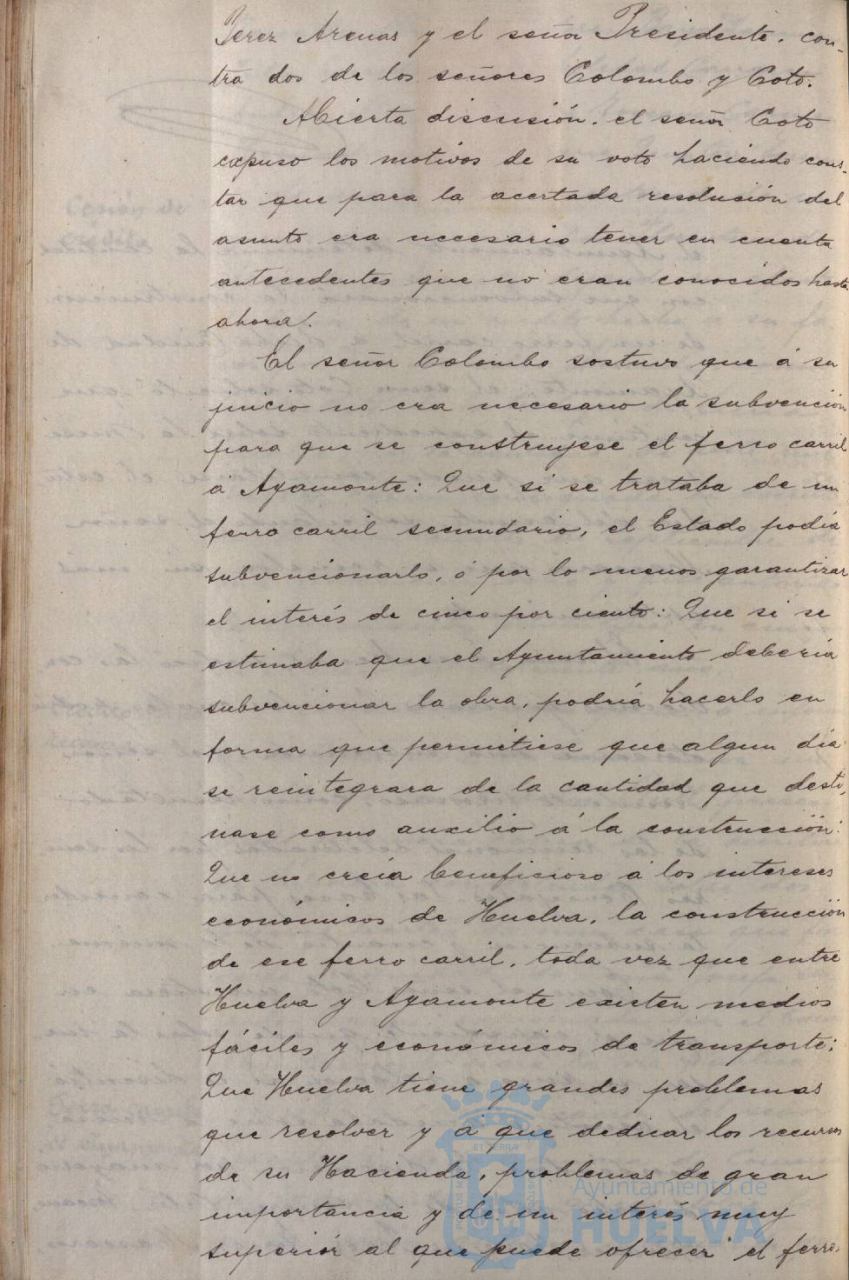 Perez Arenas y el señor Presidente, con-
tra dos de los señores Colombo y Coto.
Abierta discusión, el señor Coto
expuso los motivos de su voto haciendo cons-
tar que para la acertada resolusión del
asunto era necesario tener en cuenta
antecedentes que no eran conocidos hasta
ahora.
El señor Colombo sostuvo que á su
juicio no era necesario la subvención
para que se construyese el ferro carril
á Ayamonte: Que si se trataba de un
ferro carril secundario, el Estado podía
subvencionarlo, ó por lo menos garantizar
el interés de cinco por ciento: Que si se
estimaba que el Ayuntamiento debería
subvencionar la obra, podría hacerlo en
forma que permitiese que algun dia
se reintegrara de la cantidad que desti-
nase como auxilio á la construcción:
Que no creía beneficioso á los intereses
económicos de Huelva, la construcción
de ese ferro carril, toda vez que entre
Huelva y Ayamonte existen medios
fáciles y económicos de transporte:
Que Huelva tiene grandes problemas
que resolver y á que dedicar los recursos
de su Hacienda, problemas de gran
importancia y de un interés muy
superior al que puede ofrecer el ferro-
Ayuntamiento de
HUELVA